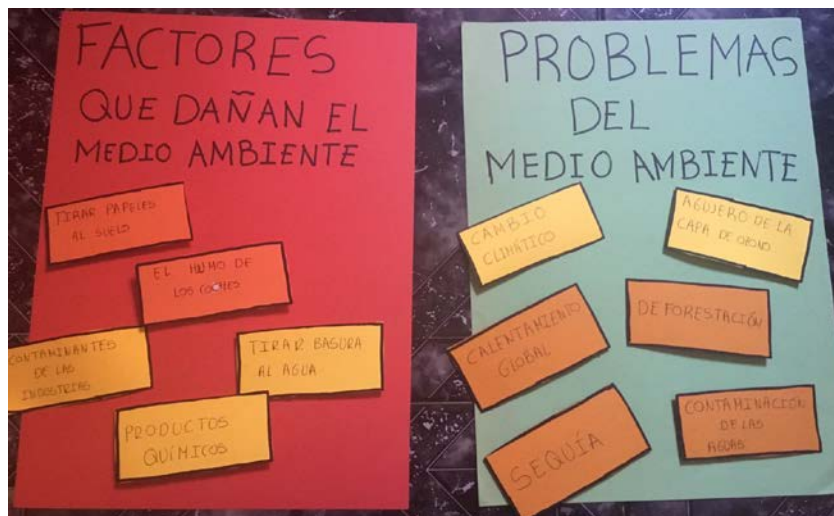 FACTORES
QUE DAÑAN EL
MEDIO AMBIENTE
TIRAR PAPELES
AL SUELO
EL HUMO DE
LOS COCHES
CONTAMINANTES
DE LAS
INDUSTRIAS
TIRAR BASURA
AL AGUA
PRODUCTOS
QUÍMICOS
PROBLEMAS
DEL
MEDIO AMBIENTE
CAMBIO
CLIMÁTICO
AGUJERO DE LA
CAPA DE OZONO
CALENTAMIENTO
GLOBAL
DEFORESTACIÓN
SEQUÍA
CONTAMINACIÓN
DE LAS
AGUAS